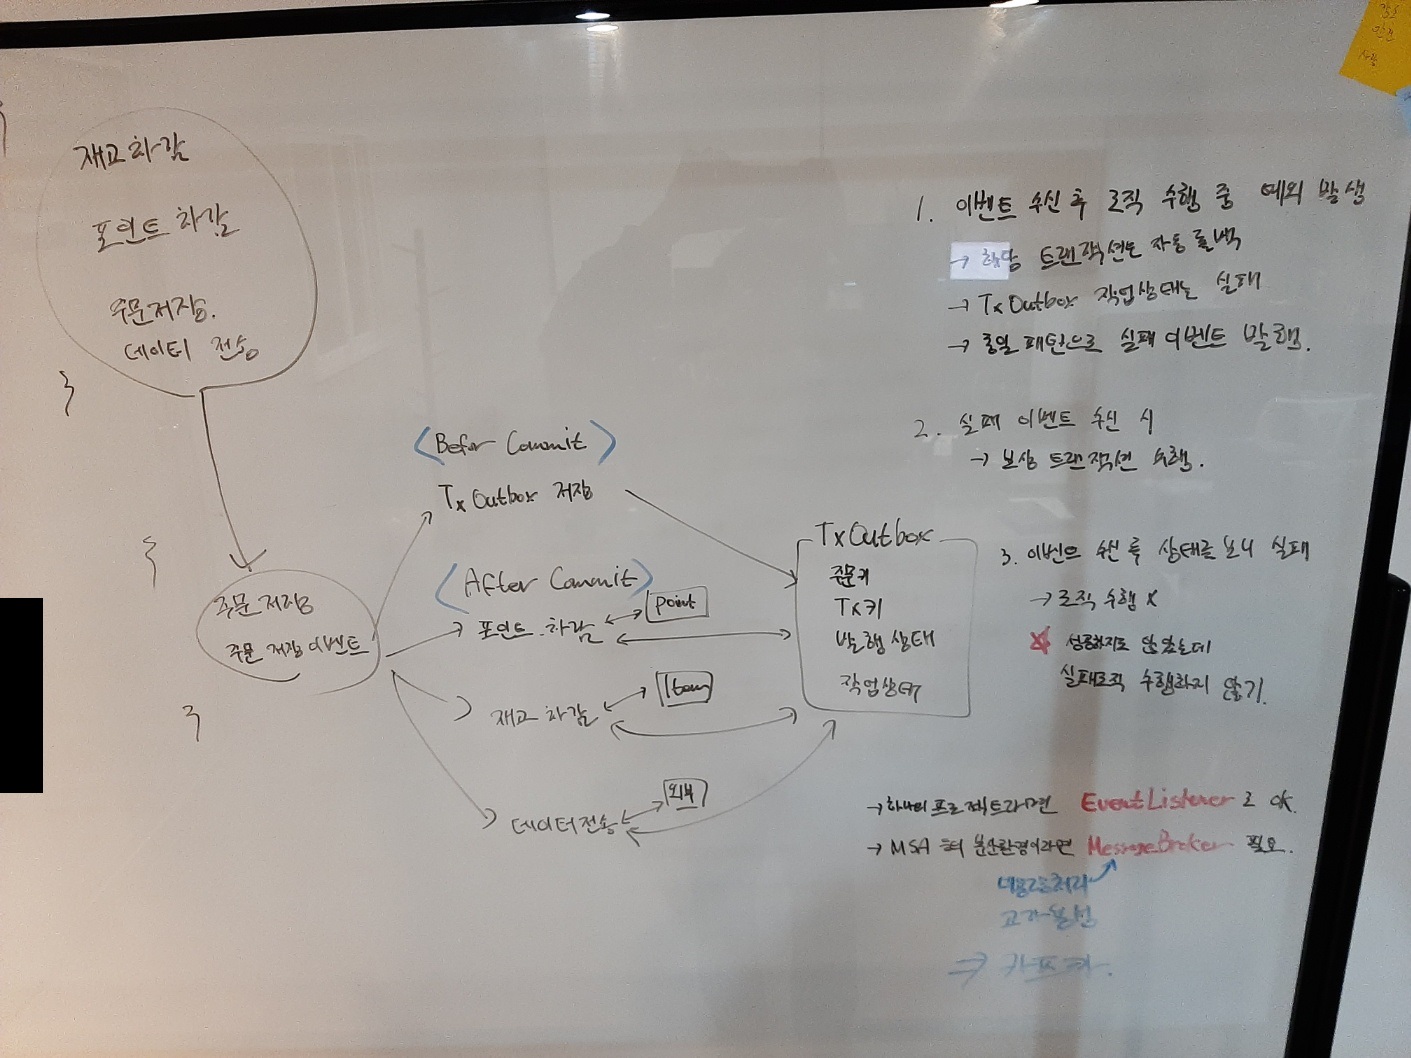 재고차감
포인트 차감
주문저장.
데이터 전송
}
{
주문저장
주문 저장 이벤트
}
<Befor Commit>
TxOutbox 저장
<After Commit>
포인트 차감
point
재고 차감
Item
데이터전송
외부
TxOutbox
주문키
Tx키
발행상태
작업상태
1. 이벤트 수신 후 로직 수행 중 예외 발생
→ 해당 트랜잭션은 자동롤백
→ TxOutbox 작업상태는 실패
→ 동일 패턴으로 실패이벤트 발행.
2. 실패 이벤트 수신 시
→ 보상 트랜잭션 수행.
3. 이벤트 수신 후 상태를 보니 실패
→ 로직 수행 X
성공하지도 않았는데
실패로직 수행하지 않기.
→ 하나의 프로젝트라면 EventListener로 OK.
→ MSA 분산환경이라면 MessageBroker 필요.
대용량처리
⇒ 카프카.